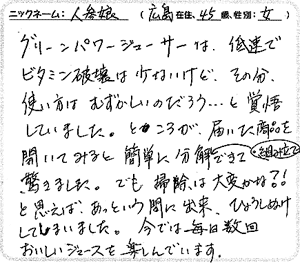 ニックネーム:人参娘 (広島在住、45歳、性別:女)
グリーンパワージューサーは、低速で
ビタミン破壊は少ないけど、その分、
使い方はむずかしいのだろう…と覚悟
していました。ところが、届いた商品を
開いてみると簡単に分解できて<組み立て
驚きました。でも掃除は大変かな?!
と思えば、あっという間に出来、ひょうしぬけ
してしまいました。今では毎日数回
おいしいジュースを楽しんでいます。